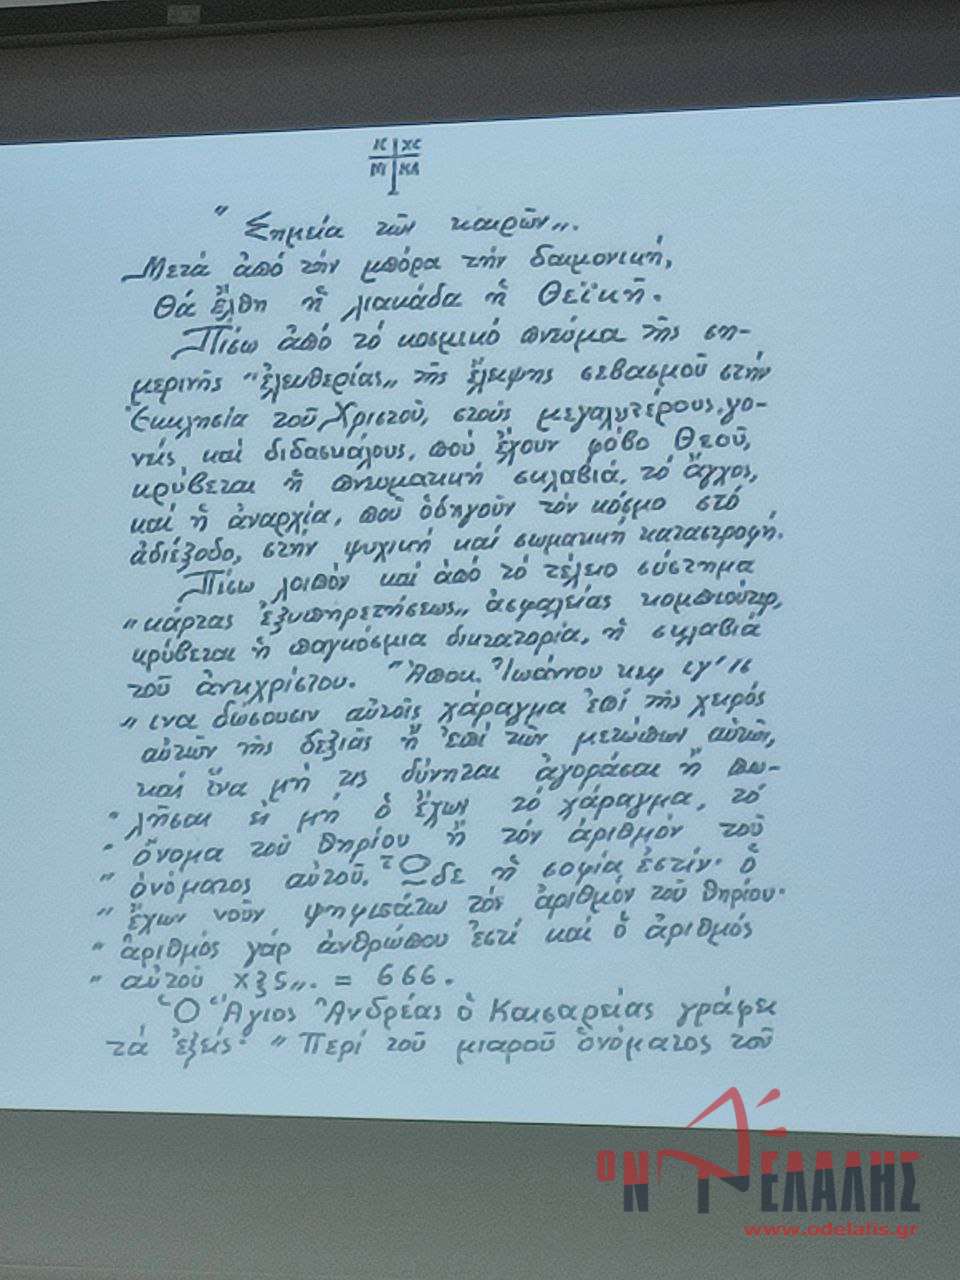 ΙC XC
ΝΙ ΚΑ
" Σημεία τῶν καιρῶν„.
Μετά ἀπό τήν μπόρα τήν δαιμονική,
Θά ἔλθη ἡ λιακάδα ἡ Θεϊκή.
Πίσω ἀπό τό κοσμικό πνεῦμα τῆς ση-
μερινῆς "ἐλευθερίας„ τῆς ἔλειψης σεβασμοῦ στήν
Ἐκκλησία τοῦ Χριστοῦ, στούς μεγαλυτέρους, γο-
νεῖς καί διδασκάλους, πού ἔχουν φόβο Θεοῦ,
κρύβεται ἡ πνευματική σκλαβιά, τό ἄγχος,
καί ἡ ἀναρχία, πού ὁδηγοῦν τόν κόσμο στό
ἀδιέξοδο, στήν ψυχική καί σωματική καταστροφή.
Πίσω λοιπόν καί ἀπό τό τέλειο σύστημα
"κάρτας ἐξυπηρετήσεως„ ἀσφαλείας κομπιούτερ,
κρύβεται ἡ παγκόσμια δικτατορία, ἡ σκλαβιά
τοῦ ἀντιχρίστου. "Ἀποκ. Ἰωάννου κεφ ιγ' 16
" ινα δώσουσιν αὐτοῖς χάραγμα ἐπί τῆς χειρός
αὐτῶν τῆς δεξιᾶς ἤ ἐπί τῶν μετώπων αὐτῶν,
καί ἵνα μή τις δύνηται ἀγοράσαι ἤ πω-
" λῆσαι εἰ μή ὁ ἔχων τό χάραγμα, τό
" ὄνομα τοῦ θηρίου ἤ τόν ἀριθμόν τοῦ
" ὀνόματος αὐτοῦ. Ὧδε ἡ σοφία ἐστίν· ὁ
" ἔχων νοῦν ψηφισάτω τόν ἀριθμόν τοῦ θηρίου·
" ἀριθμός γάρ ἀνθρώπου ἐστί καί ὁ ἀριθμός
" αὐτοῦ χξς„. = 666.
Ὁ Ἅγιος Ἀνδρέας ὁ Καισαρείας γράφει
τά ἑξῆς· "Περί τοῦ μιαροῦ ὀνόματος τοῦ
Ο ΝΤΕΛΑΛΗΣ
www.odelalis.gr